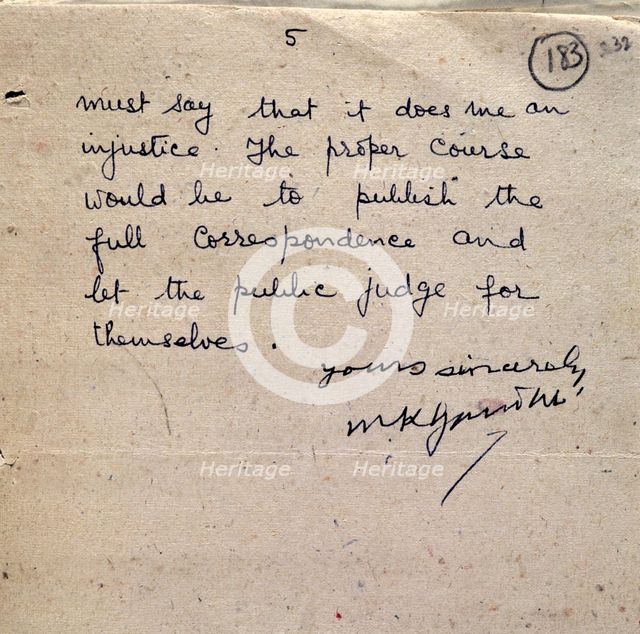 5
183
232
must say that it does me an
injustice. The proper course
would be to publish the
full correspondence and
let the public judge for
themselves.
yours sincerely,
MKGandhi
Heritage Heritage Heritage
Heritage Heritage
Heritage Heritage Heritage